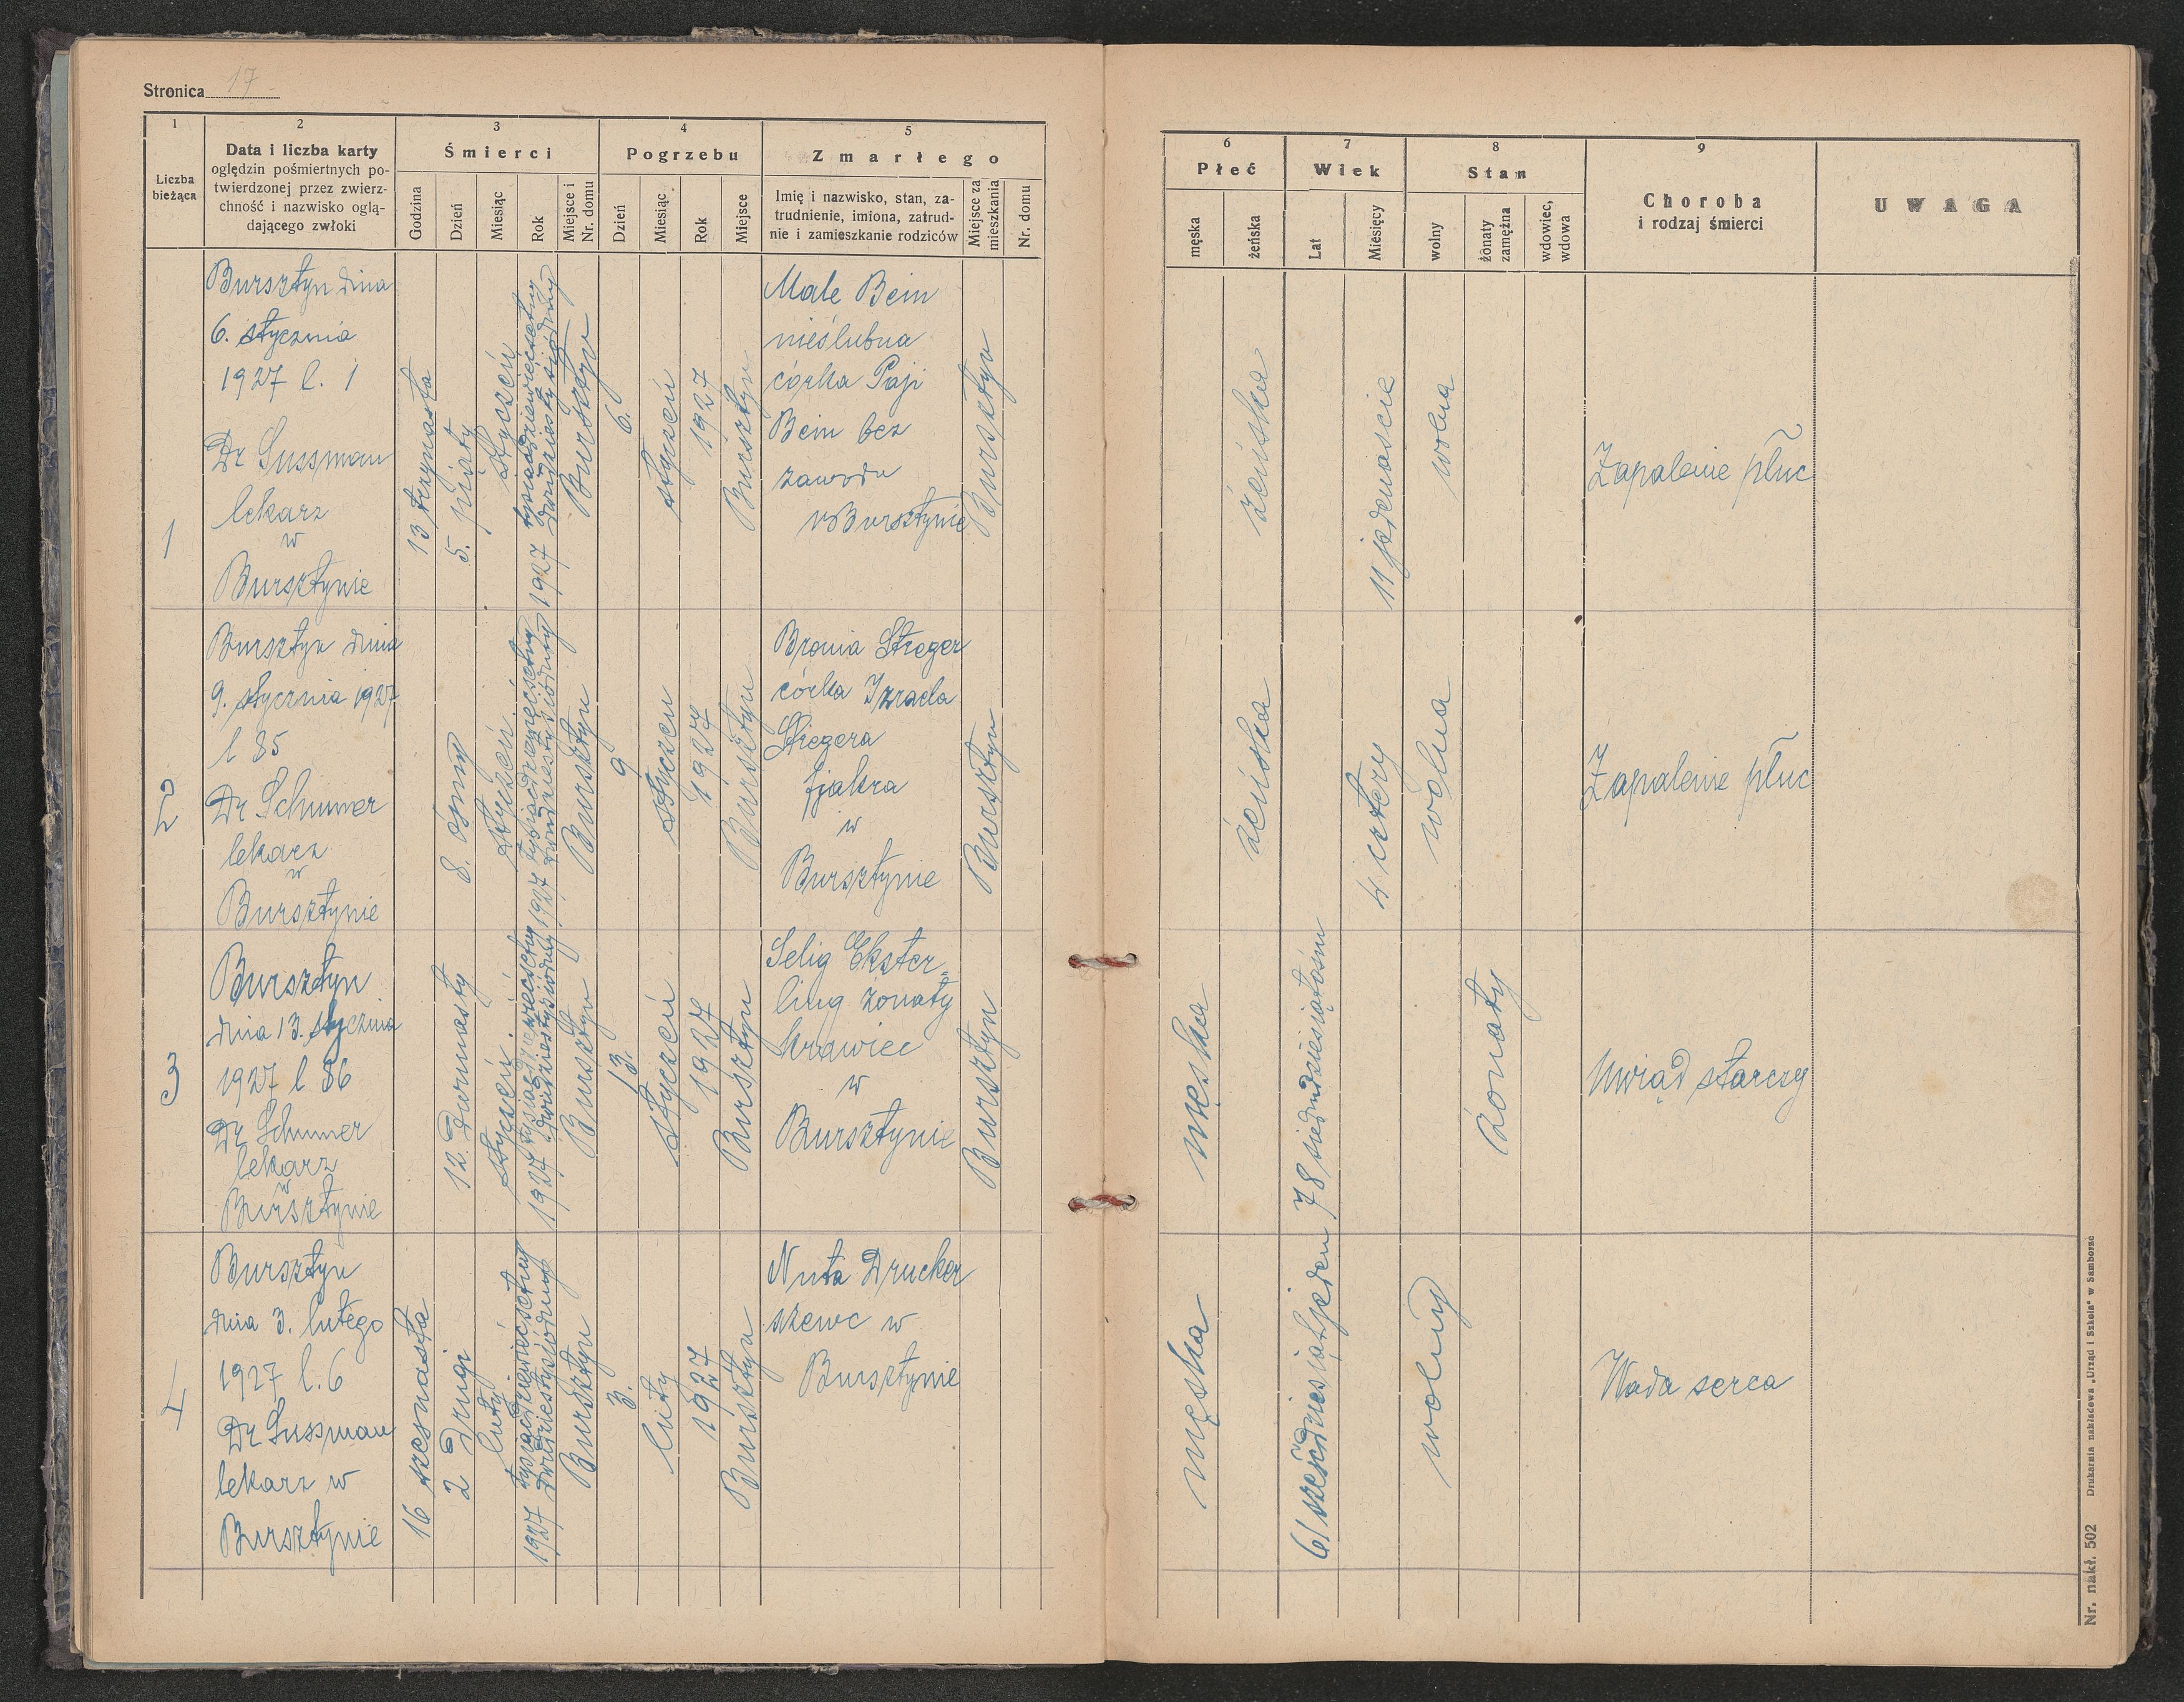 Stronica 17
1
2
3
4
5
Liczba
bieżąca
Data i liczba karty
oględzin pośmiertnych po-
twierdzonej przez zwierz-
chność i nazwisko oglą-
dającego zwłoki
Śmierci
Godzina
Dzień
Miesiąc
Rok
Miejsce i
Nr. domu
Pogrzebu
Dzień
Miesiąc
Rok
Miejsce
Zmarłego
Imię i nazwisko, stan, za-
trudnienie, imiona, zatrud-
nie i zamieszkanie rodziców
Miejsce za
mieszkania
Nr. domu
6
7
8
9
Płeć
męska
żeńska
Wiek
Lat
Miesięcy
Stan
wolny
żonaty
zamężna
wdowiec,
wdowa
Choroba
i rodzaj śmierci
UWAGA
1
Bursztyn dnia
6. stycznia
1927 l. 1
Dr Sussman
lekarz
w
Bursztynie
13 trzynasta
5. piąty
styczeń
1927 tysiącdziewięćsetny
dwudziestysiódmy
Bursztyn
6.
styczeń
1927
Bursztyn
Male Bein
nieślubna
córka Paji
Bein bez
zawodu
w Bursztynie
Bursztyn
żeńska
11 jedenaście
wolna
Zapalenie płuc
2
Bursztyn dnia
9. stycznia 1927
l 85
Dr Schumer
lekarz
w
Bursztynie
8. ósmy
styczeń
1927 tysiącdziewięćsetny
1927 dwudziestysiódmy
Bursztyn
9
styczeń
1927
Bursztyn
Bronia Streger
córka Izraela
Stregera
fjakra
w
Bursztynie
Bursztyn
żeńska
4 cztery
wolna
Zapalenie płuc
3
Bursztyn
dnia 13. stycznia
1927 l 86
Dr Schumer
lekarz
w
Bursztynie
12. dwunasty
styczeń
1927 tysiącdziewięćsetny
dwudziestysiódmy
Bursztyn
13.
styczeń
1927
Bursztyn
Selig Ekster-
ling żonaty
krawiec
w
Bursztynie
Bursztyn
męska
78 siedmdziesiątośm
żonaty
Uwiąd starczy
4
Bursztyn
dnia 3. lutego
1927 l. 6
Dr Sussman
lekarz w
Bursztynie
16 szesnasta
2 drugi
luty
1927 tysiącdziewięćsetny
dwudziestysiódmy
Bursztyn
3.
luty
1927
Bursztyn
Nuta Drucker
szewc w
Bursztynie
męska
61 sześćdziesiątjeden
wolny
Wada serca
Nr. nakł. 502 Drukarnia nakładowa „Urząd i Szkoła" w Samborze